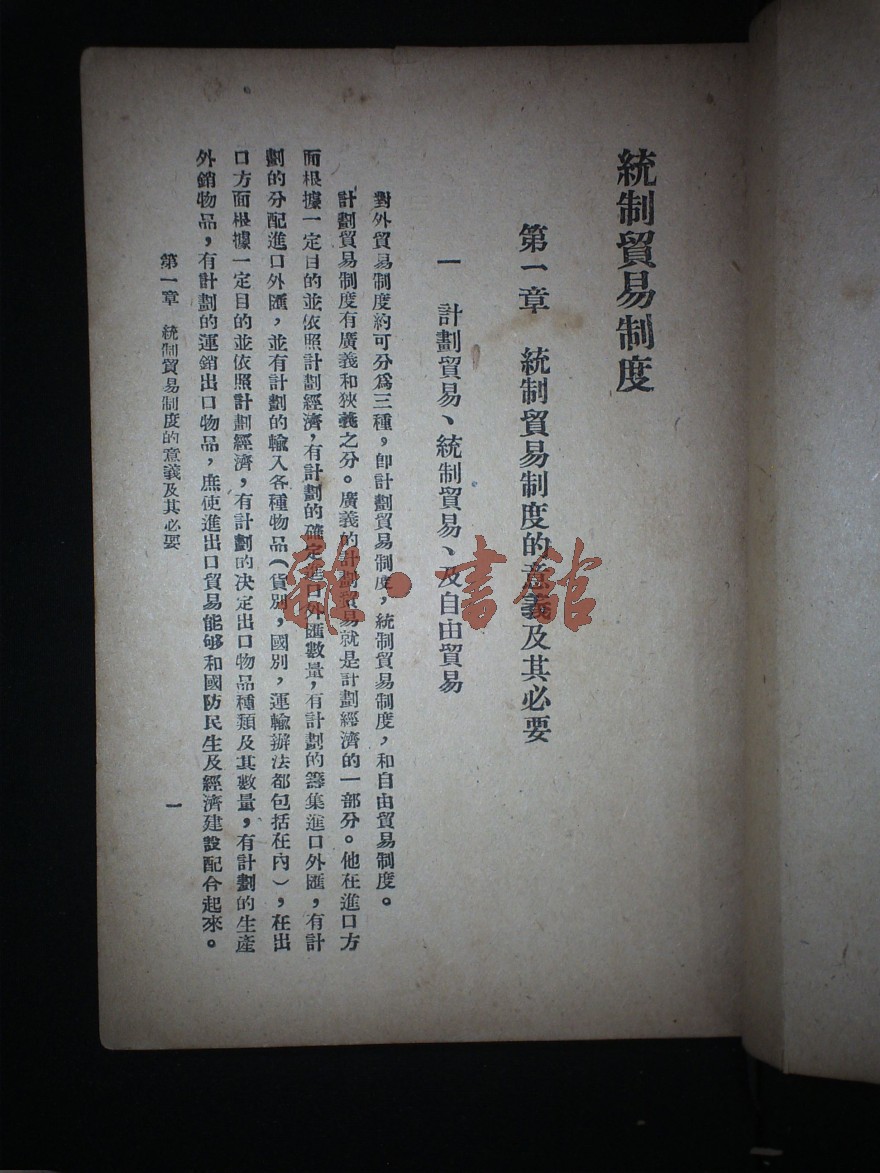 統制貿易制度
第一章 統制貿易制度的意義及其必要
一 計劃貿易、統制貿易、及自由貿易
對外貿易制度約可分爲三種,卽計劃貿易制度,統制貿易制度,和自由貿易制度。
計劃貿易制度有廣義和狹義之分。廣義的計劃貿易就是計劃經濟的一部分。他在進口方
面根據一定目的並依照計劃經濟,有計劃的確定進口外匯數量,有計劃的籌集進口外匯,有計
劃的分配進口外匯,並有計劃的輸入各種物品(貨別,國別,運輸辦法都包括在內),在出
口方面根據一定目的並依照計劃經濟,有計劃的决定出口物品種類及其數量,有計劃的生產
外銷物品,有計劃的運銷出口物品,庶使進出口貿易能够和國防民生及經濟建設配合起來。
第一章 統制貿易制度的意義及其必要
一
書館